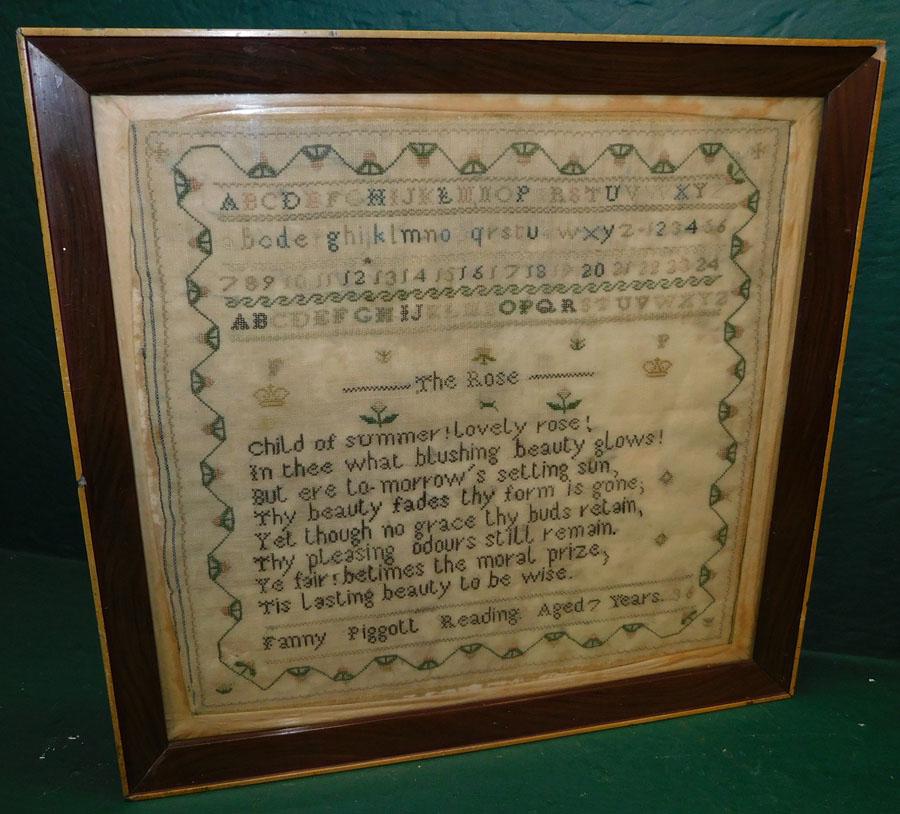 ABCDEFGHIJKLMNOP RSTUVWXYZ
abcdefghijklmno qrstu wxyz - 123456
7 8 9 10 11 12 13 14 15 16 17 18 19 20 21 22 23 24
ABCDEFGHIJKLMNOPQRSTUVWXYZ
P P
The Rose
Child of summer! lovely rose!
In thee what blushing beauty glows!
But ere to-morrow's setting sun,
Thy beauty fades thy form is gone;
Yet though no grace thy buds retain,
Thy pleasing odours still remain.
Ye fair! betimes the moral prize,
Tis lasting beauty to be wise.
Fanny Piggott Reading. Aged 7 Years.